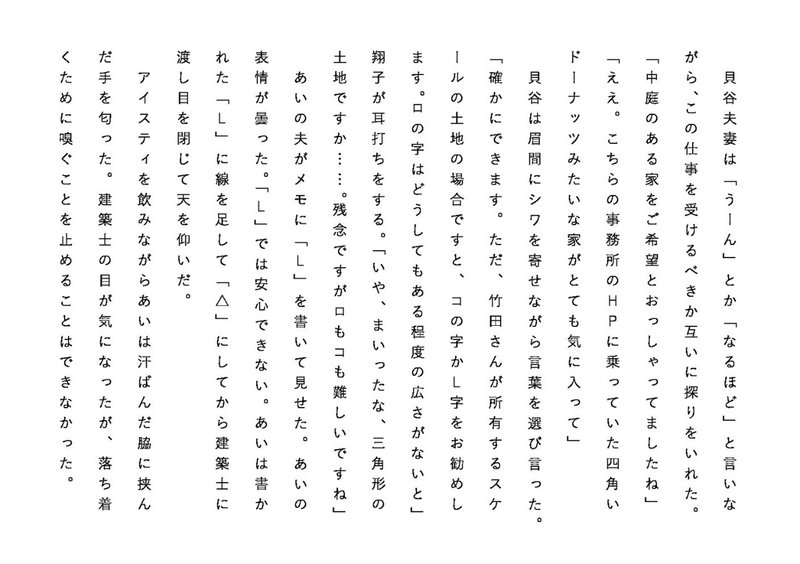 貝谷夫妻は「うーん」とか「なるほど」と言いな
がら、この仕事を受けるべきか互いに探りをいれた。
「中庭のある家をご希望とおっしゃってましたね」
「ええ。こちらの事務所のＨＰに乗っていた四角い
ドーナッツみたいな家がとても気に入って」
貝谷は眉間にシワを寄せながら言葉を選び言った。
「確かにできます。ただ、竹田さんが所有するスケ
ールの土地の場合ですと、コの字かＬ字をお勧めし
ます。ロの字はどうしてもある程度の広さがないと」
翔子が耳打ちをする。「いや、まいったな、三角形の
土地ですか……。残念ですがロもコも難しいですね」
あいの夫がメモに「Ｌ」を書いて見せた。あいの
表情が曇った。「Ｌ」では安心できない。あいは書か
れた「Ｌ」に線を足して「△」にしてから建築士に
渡し目を閉じて天を仰いだ。
アイスティを飲みながらあいは汗ばんだ脇に挟ん
だ手を匂った。建築士の目が気になったが、落ち着
くために嗅ぐことを止めることはできなかった。